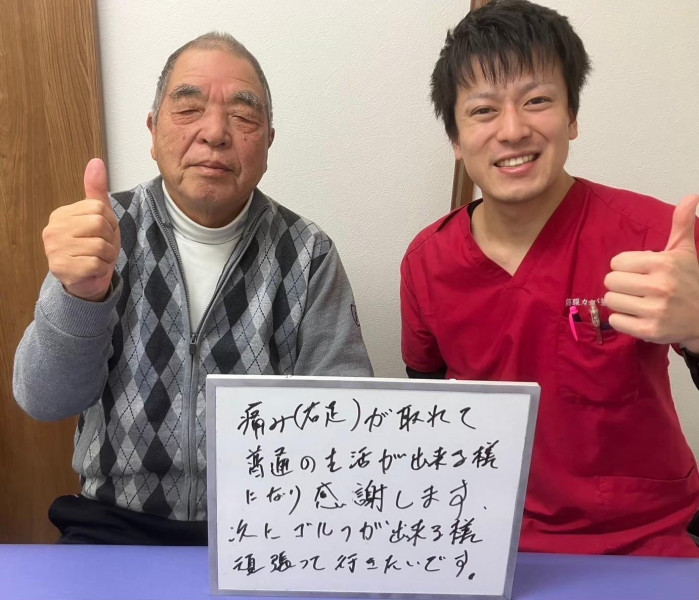 痛み(右足)が取れて
普通の生活が出来る様
になり感謝します.
次にゴルフが出来る様
頑張って行きたいです。